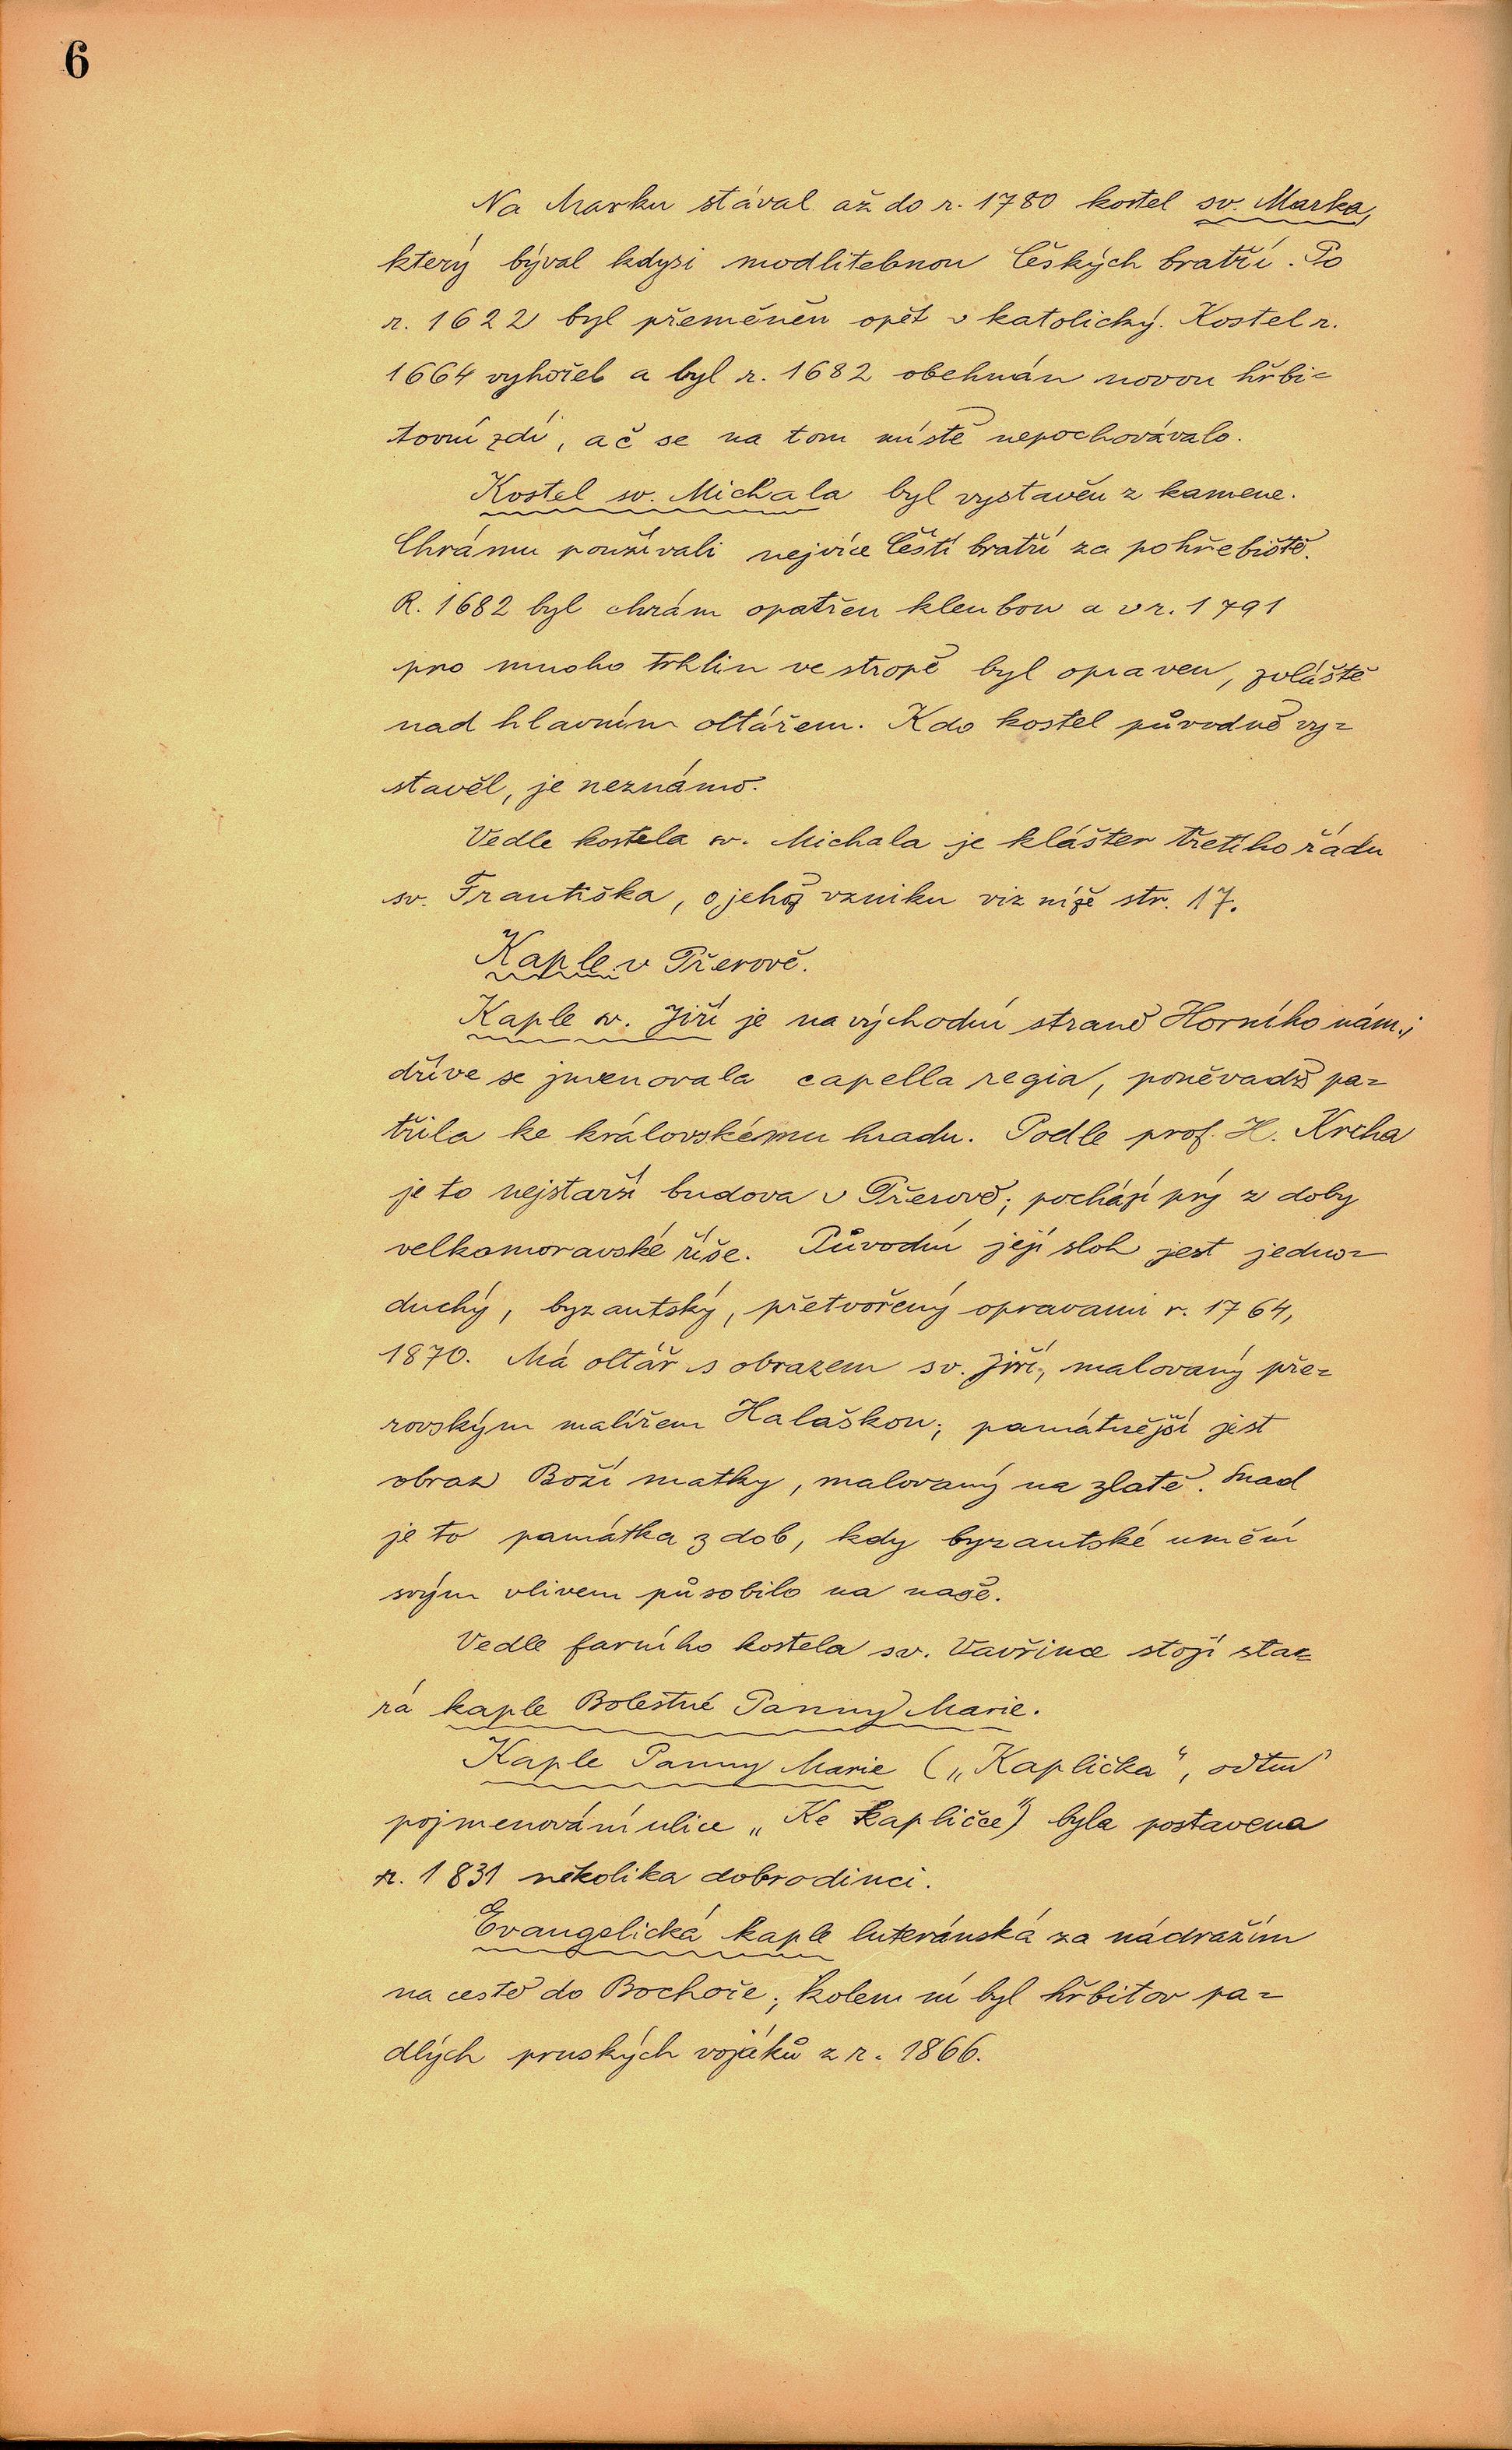 6
Na Marku stával až do r. 1780 kostel sv. Marka,
který býval kdysi modlitebnou Českých bratří. Po
r. 1622 byl přeměněn opět v katolický. Kostel r.
1664 vyhořel a byl r. 1682 obehnán novou hřbi-
tovní zdí, ač se na tom místě nepochovávalo.
Kostel sv. Michala byl vystavěn z kamene.
Chrámu použivali nejvíce Čeští bratří za pohřebiště.
R. 1682 byl chrám opatřen klenbou a v r. 1791
pro mnoho trhlin ve stropě byl opraven, zvláště
nad hlavním oltářem. Kdo kostel původně vy-
stavěl, je neznámo.
Vedle kostela sv. Michala je klášter třetího řádu
sv. Františka, o jehož vzniku viz níže str. 17.
Kaple v Přerově.
Kaple sv. Jiří je na východní straně Horního nám.;
dříve se jmenovala capella regia, poněvadž pa-
třila ke královskému hradu. Podle prof. H. Krcha
je to nejstarší budova v Přerově; pochází prý z doby
velkomoravské říše. Původní její sloh jest jedno-
duchý, byzantský, přetvořený opravami r. 1764,
1870. Má oltář s obrazem sv. Jiří, malovaný pře-
rovským malířem Halaškou; památnější jest
obraz Boží matky, malovaný na zlatě. Snad
je to památka z dob, kdy byzantské umění
svým vlivem působilo na naše.
Vedle farního kostela sv. Vavřince stojí sta-
rá kaple Bolestné Panny Marie.
Kaple Panny Marie („Kaplička“, odtud
pojmenování ulice „Ke Kapličce“) byla postavena
r. 1831 několika dobrodinci.
Evangelická kaple luteránská za nádražím
na cestě do Bochoře; kolem ní byl hřbitov pa-
dlých pruských vojáků z r. 1866.